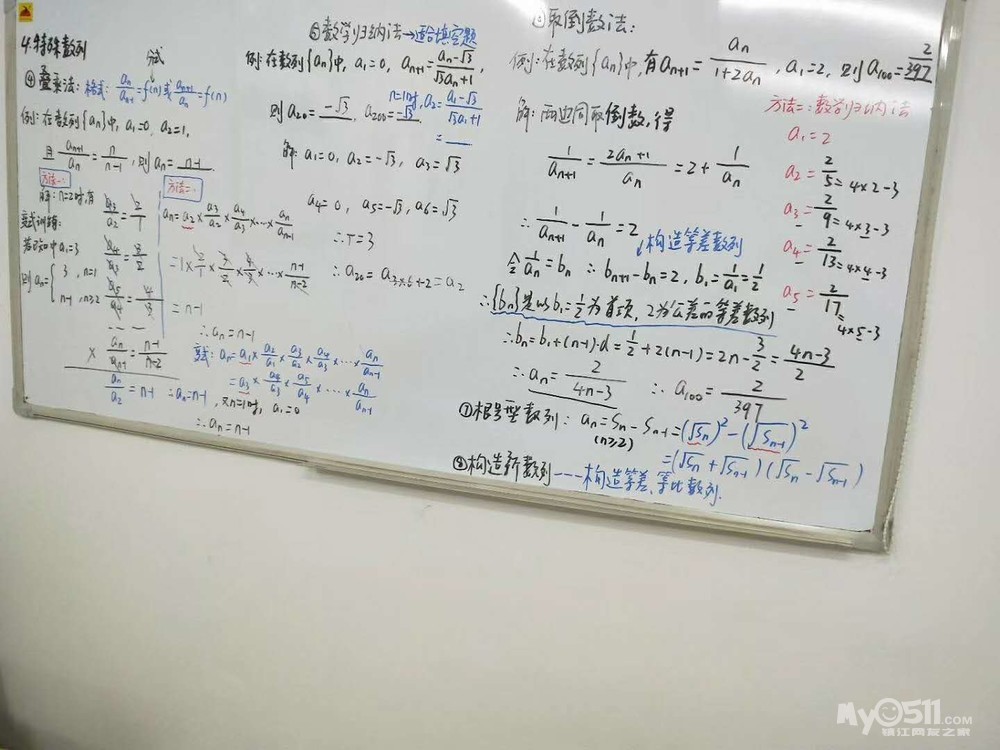 4.特殊数列
分式
④叠乘法: 格式: an/an+1 = f(n) 或 an+1/an = f(n)
例:在数列{an}中, a1=0, a2=1,
且 an+1/an = n/n-1, 则 an = n-1.
方法一:
解: n=2时,有
a3/a2 = 2/1
a4/a3 = 3/2
a5/a4 = 4/3
× an/an-1 = n-1/n-2
an/a2 = n-1 ∴an=n-1, 又n=1时, a1=0
∴an=n-1
变式训练:
若已知中a1=3
则an={3, n=1
n-1, n≥2
方法二:
an=a2×a3/a2×a4/a3×…×an/an-1
=1×2/1×3/2×4/3×…×n-1/n-2
=n-1
∴an=n-1
变式: an=a1×a2/a1×a3/a2×a4/a3×…×an/an-1
=a3×a4/a3×a5/a4×…×an/an-1
⑤数学归纳法→适合填空题
例:在数列{an}中, a1=0, an+1=an-√3/√3an+1,
则 a20=-√3. a200=-√3.
n=1时, a2=a1-√3/√3a1+1
=
解: a1=0, a2=-√3, a3=√3
a4=0, a5=-√3, a6=√3
∴T=3
∴a20=a3×6+2=a2
取倒数法:
例:在数列{an}中,有an+1=an/1+2an, a1=2, 则a100=2/397
解: 两边同取倒数,得
1/an+1=2an+1/an=2+1/an
∴1/an+1-1/an=2
构造等差数列
令1/an=bn ∴bn+1-bn=2, b1=1/a1=1/2
∴{bn}是以b1=1/2为首项, 2为公差的等差数列
∴bn=b1+(n-1)·d=1/2+2(n-1)=2n-3/2=4n-3/2
∴an=2/4n-3 ∴a100=2/397
方法二:数学归纳法
a1=2
a2=2/5=4×2-3
a3=2/9=4×3-3
a4=2/13=4×4-3
a5=2/17
=4×5-3
⑦根号型数列: an=Sn-Sn-1=(√Sn)²-(√Sn-1)²
(n≥2)
=(√Sn+√Sn-1)(√Sn-√Sn-1)
⑧构造新数列---构造等差、等比数列.
My0511.com
镇江网友之家